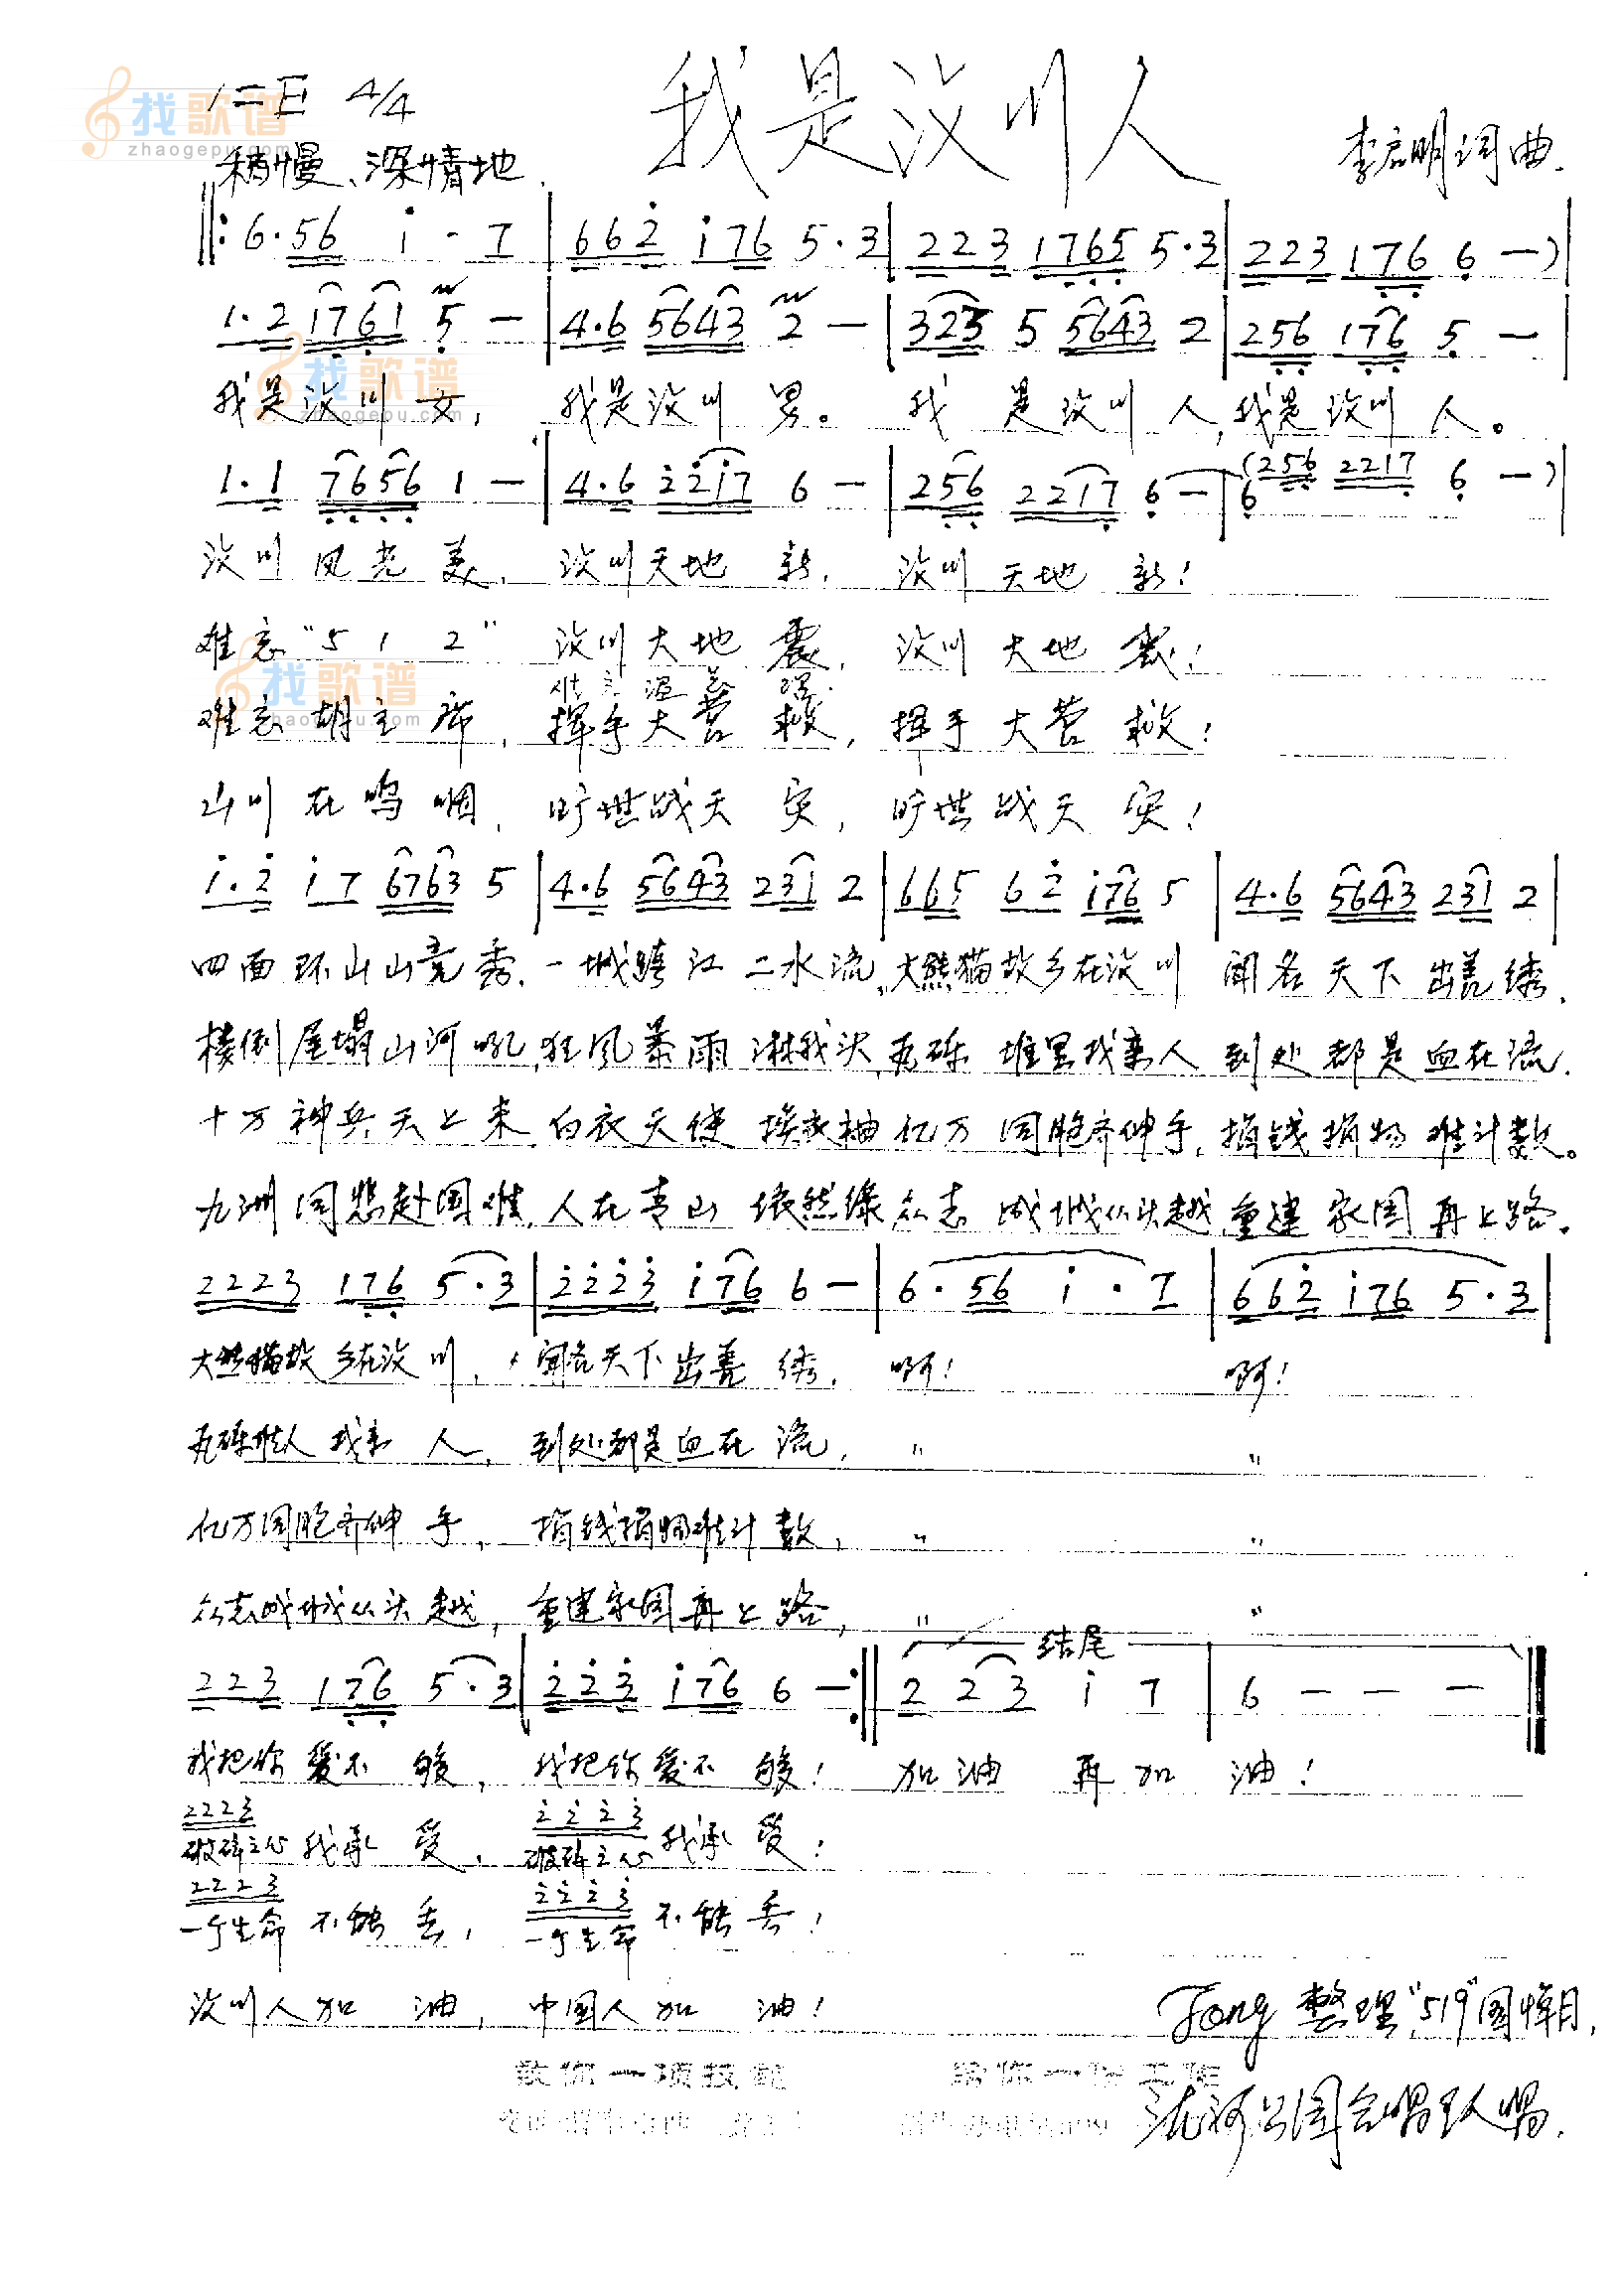 我是汶川人
1=E 4/4
找歌谱
zhaogepu.com
稍慢、深情地.
李启明词曲.
‖: 6·56 i · 7 | 662 i76 5·3 | 223 1765 5·3 | 223 176 6 —) |
1·2 1761 5 — | 4·6 5643 2 — | 323 5 5643 2 | 256 176 5 — |
找歌谱
zhaogepu.com
我是汶川女， 我是汶川男。 我是汶川人，我是汶川人。
1·1 7656 1 — | 4·6 2217 6 — | 256 2217 6 — | 6 (256 2217 6 —) |
汶川风光美， 汶川天地新， 汶川天地新！
难忘“512” 汶川大地震， 汶川大地震！
找歌谱
zhaogepu.com
难忘胡主席， 挥手大营救， 挥手大营救！
山川在呜咽， 旷世战天灾， 旷世战天灾！
i·2 i7 6763 5 | 4·6 5643 231 2 | 665 62 i76 5 | 4·6 5643 231 2 |
四面环山山竞秀，一城跨江二水流，大熊猫故乡在汶川 闻名天下出羌绣，
楼倒屋塌山河吼，狂风暴雨淋我头，瓦砾堆里找亲人 到处都是血在流，
十万神兵天上来，白衣天使挨衣袖 亿万同胞齐伸手，捐钱捐物难计数。
九洲同悲赴国难，人在青山依然绿 众志成城从头越，重建家园再上路。
2223 176 5·3 | 2223 i76 6 — | 6·56 i · 7 | 662 i76 5·3 |
大熊猫故乡在汶川， 闻名天下出羌绣， 啊！ 啊！
瓦砾堆人找亲人， 到处都是血在流， 〃 〃
亿万同胞齐伸手， 捐钱捐物难计数， 〃 〃
众志成城从头越， 重建家园再上路， 〃 〃
结尾
223 176 5·3 | 223 i76 6 — :‖ 2 23 i 7 | 6 — — — ‖
我把你爱不够， 我把你爱不够！ 加油再加油！
2223 2223
破碎之心我承受， 破碎之心我承受！
2223 2223
一个生命不能丢， 一个生命不能丢！
汶川人加油， 中国人加油！
Jong 整理“519”国悼日，
教你一项技能
河公园合唱队唱.